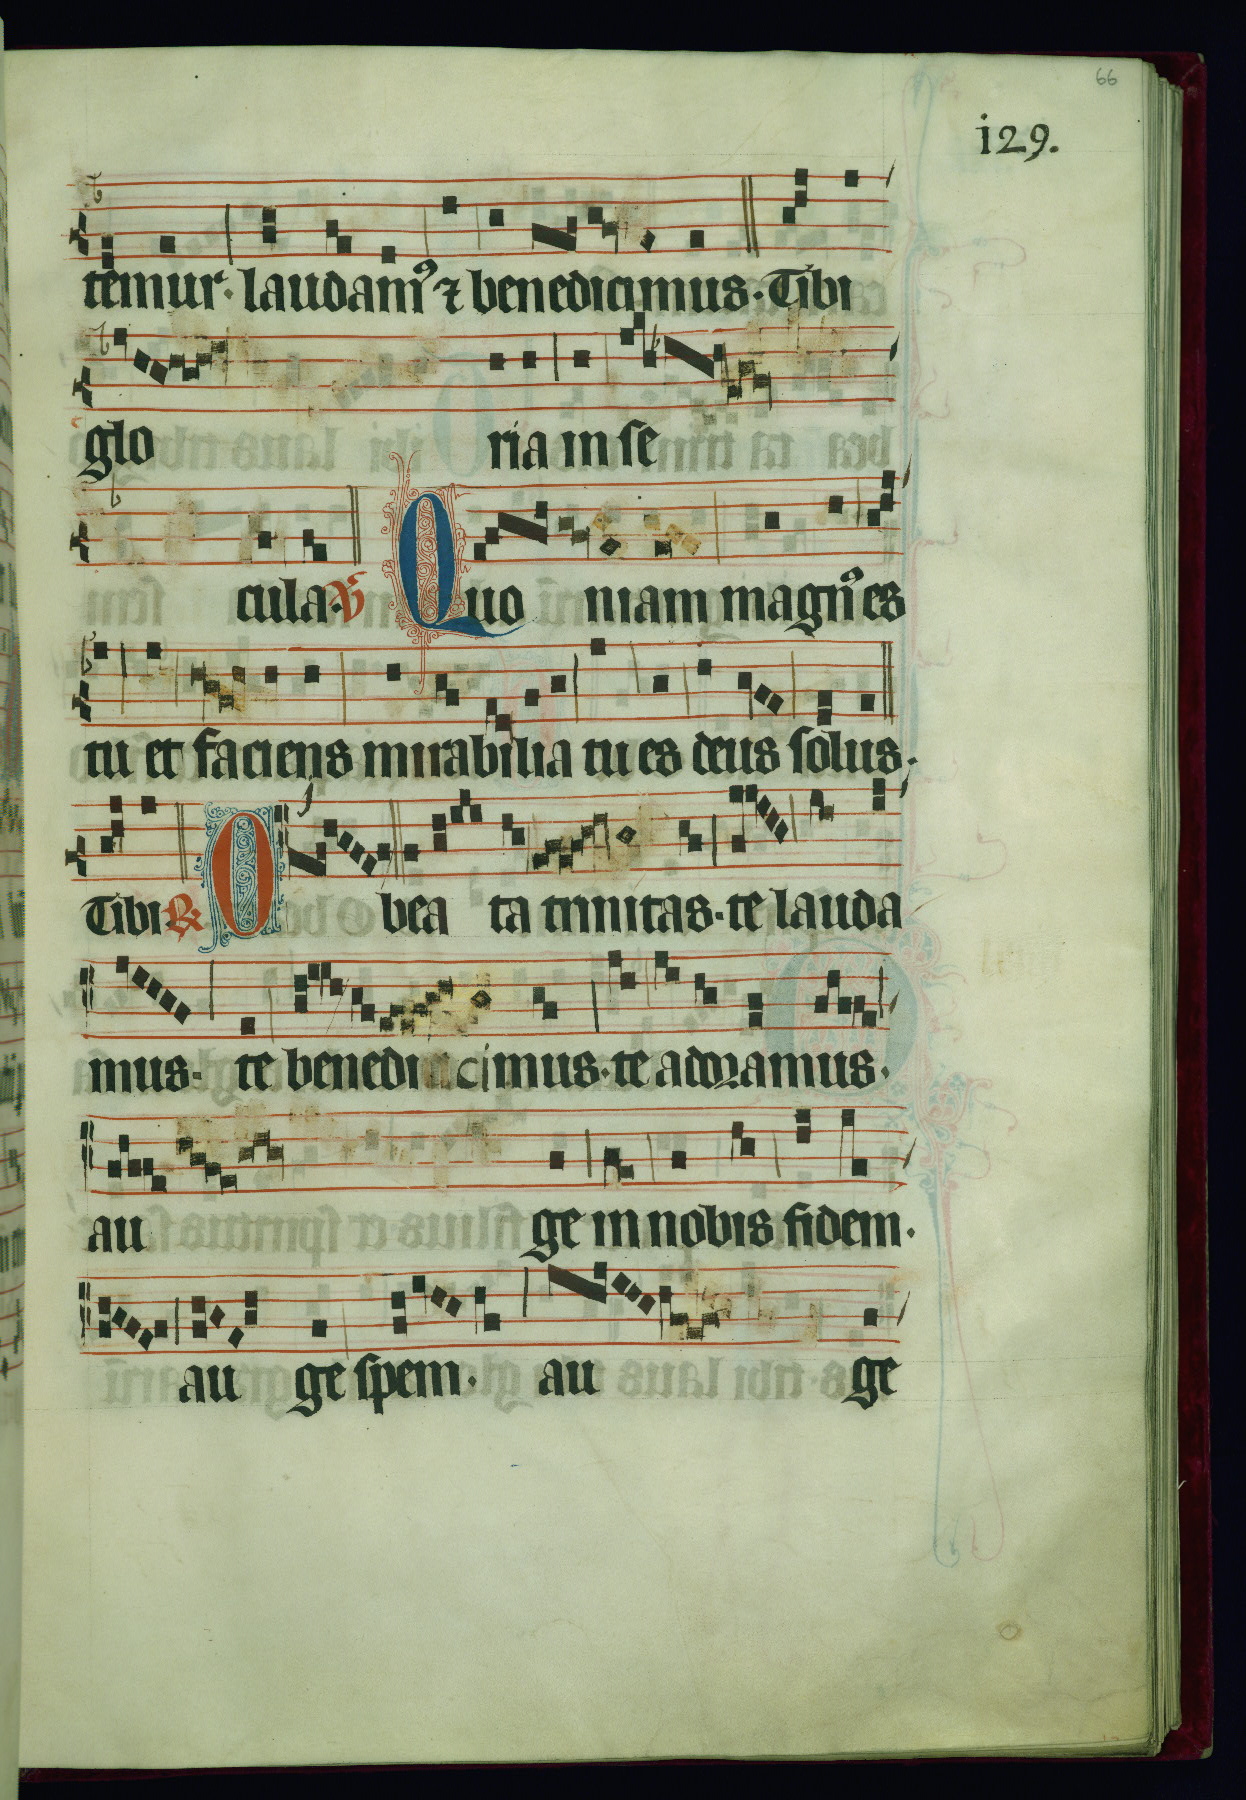 66
i29.
temur. laudamꝰ ⁊ benedicimus. Tibi
glo ria in se
cula. ℣ Quo niam magnꝰ es
tu et faciens mirabilia tu es deus solus.
Tibi ℟ O bea ta trinitas. te lauda
mus. te benedi cimus. te adoramus.
au ge in nobis fidem.
au ge spem. au ge